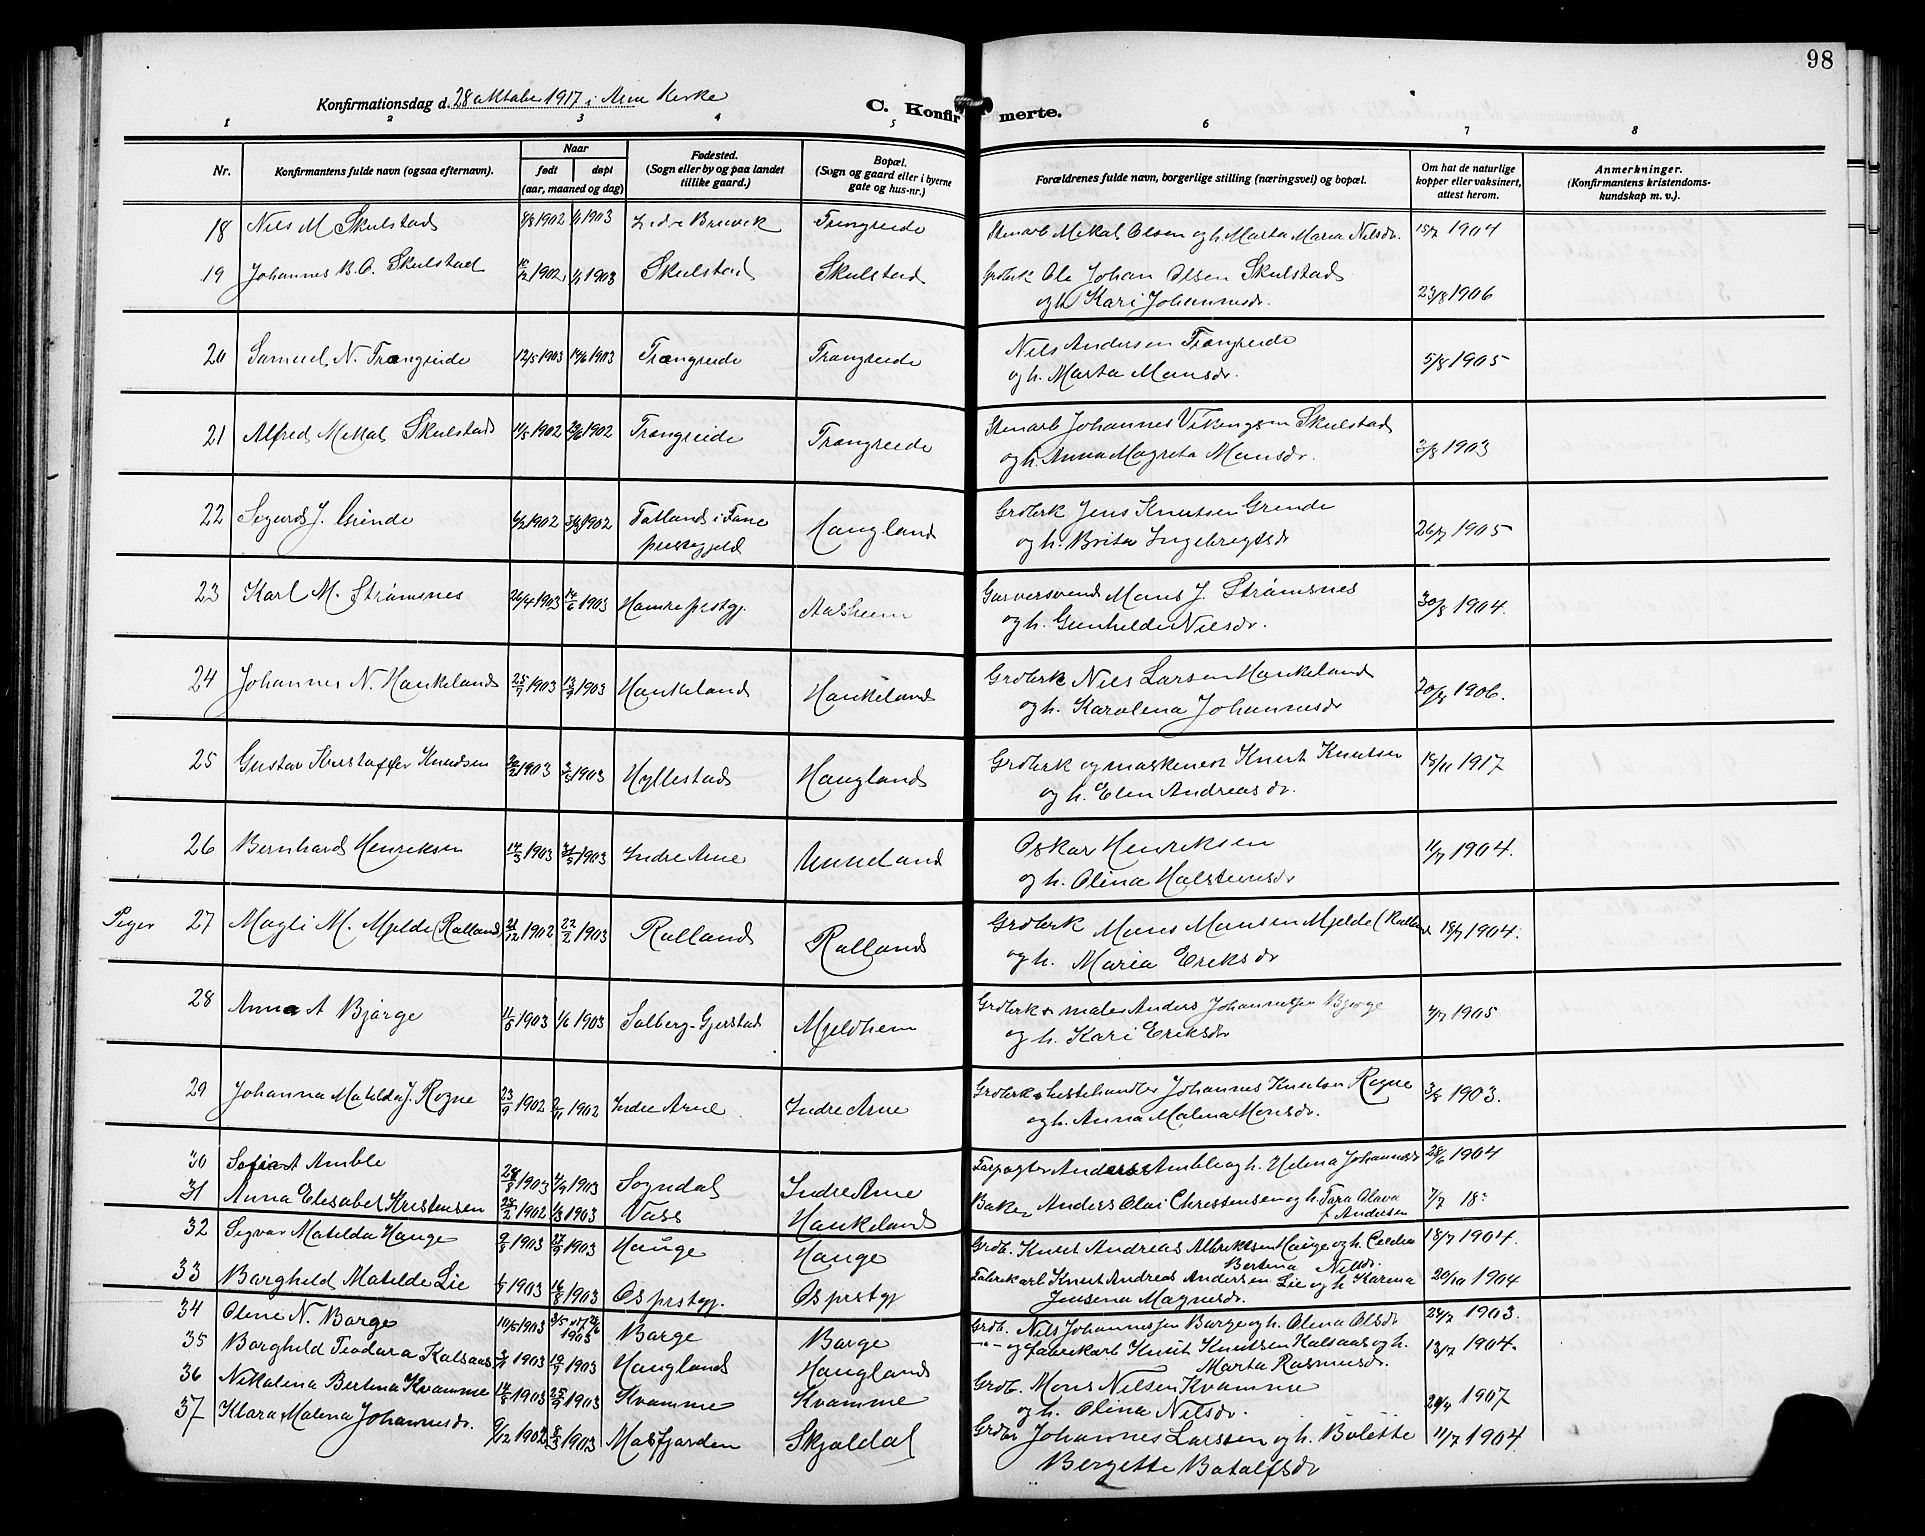 98
Konfirmationsdag d. 28 oktober 1917 i Arne Kirke
C. Konfirmerte.
1 2 3 4 5 6 7 8
Nr.
Konfirmantens fulde navn (ogsaa efternavn).
Naar
født
døpt
(aar, maaned og dag)
Fødested.
(Sogn eller by og paa landet
tillike gaard.)
Bopæl.
(Sogn og gaard eller i byerne
gate og hus-nr.)
Forældrenes fulde navn, borgerlige stilling (næringsvei) og bopæl.
Om hat de naturlige
kopper eller vaksinert,
attest herom.
Anmerkninger.
(Konfirmantens kristendoms-
kundskap m. v.)
18 Nils M Skulstad 1902 1903 Trengreide Stenarb Mikal Olsen og h. Marta Maria Nilsdr. 15/7 1904
19 Johannes B. O. Skulstad 1902 1/1 1903 Skulstad Skulstad Grdbrk Ole Johan Olsen Skulstad
og h Kari Johannesdr. 23/8 1906
20 Samuel N. Trengreide 12/5 1903 14/6 1903 Trengreide Trengreide Nils Andersen Trengreide
og h. Marta Monsdr. 5/8 1905
21 Alfred Mikal Skulstad 11/5 1902 29/6 1902 Trengreide Trengreide Stenarb Johannes Vikingsen Skulstad
og h. Anna Magreta Monsdr. 3/8 1903
22 Sigurd J. Grinde 1902 1902 Totland i Fane
prestegjeld Haugland Grdbrk Jens Knutsen Grende
og h. Brita Ingebrigtsdr 26/7 1905
23 Karl M. Strømsnes 26/4 1903 14/6 1903 Hamre prstgj. Aasheim Garversvend Mons J. Strømsnes
og h. Gunhilde Nilsdr. 30/8 1904.
24 Johannes N. Haukeland 25/7 1903 13/9 1903 Haukeland Haukeland Grdbrk Nils Larsen Haukeland
og h. Karolina Johannesdr 20/8 1906.
25 Gustav Kristoffer Knudsen 1903 1903 Hyllestad Haugland Grdbrk og maskinist Knut Knutsen
og h. Elen Andreasdr. 15/11 1917
26 Bernhard Henriksen 14/3 1903 31/5 1903 Indre Arne Unneland Oskar Henriksen
og h. Olina Halsteinsdr 11/7 1904.
Piger 27 Magli M. Mjelde (Ralland) 21/12 1902 22/2 1903 Ralland Ralland Grdbrk Mons Monsen Mjelde (Ralland
og h. Maria Eriksdr 18/7 1904.
28 Anna A Bjørge 11/5 1903 1/6 1903 Solberg-Gjerstad Mjeldheim Grdbrk & maler Anders Johannessen Bjørge
og h. Kari Eriksdr 1905
29 Johanna Matilda J. Rogne 23/9 1902 2/11 1902 Indre Arne Indre Arne Grdbrk & hestehandler Johannes Knutsen Rogne
og h. Anna Malena Monsdr. 3/8 1903.
30 Sofia A Amble 1903 1903 Sogndal Indre Arne Forpagter Anders Amble og h. Helena Johannesdr 28/6 1904
31 Anna Elisabet Kristensen 28/2 1902 1903 Voss Haukeland Baker Anders Olai Christensen og h. Tora Olava
f Andersen 7/7 18
32 Sigvor Matilda Hauge 1903 1903 Hauge Hauge Grdb. Knut Andreas Albriktsen Hauge og h.
Bertina Nilsdr. 18/7 1904.
33 Borghild Matilde Lie 1903 16/8 1903 Os prstgj. Os prstgj Fabrikarb Knut Andreas Andersen Lie og h Karina
Jensena Magnesdr. 20/10 1904
34 Oline N. Borge 10/5 1903 1903 Borge Borge Grdb. Nils Johannessen Borge og h. Olena Olsdr 24/7 1903.
35 Borghild Teodora Kalsaas 1903 19/7 1903 Haugland Haugland -"- og fabrikarb Knut Knutsen Kalsaas og h.
Marta Rasmusdr. 13/7 1904.
36 Nikolina Bertina Kvamme 14/8 1903 25/9 1903 Kvamme Kvamme Grdb. Mons Nilsen Kvamme
og h. Olina Nilsdr. 1907
37 Klara Malena Johannesdr. 1902 8/3 1903 Masfjorden Skjoldal Grdbr Johannes Larssen og h. Bolette
Bergette Botolfsdr 11/7 1904.